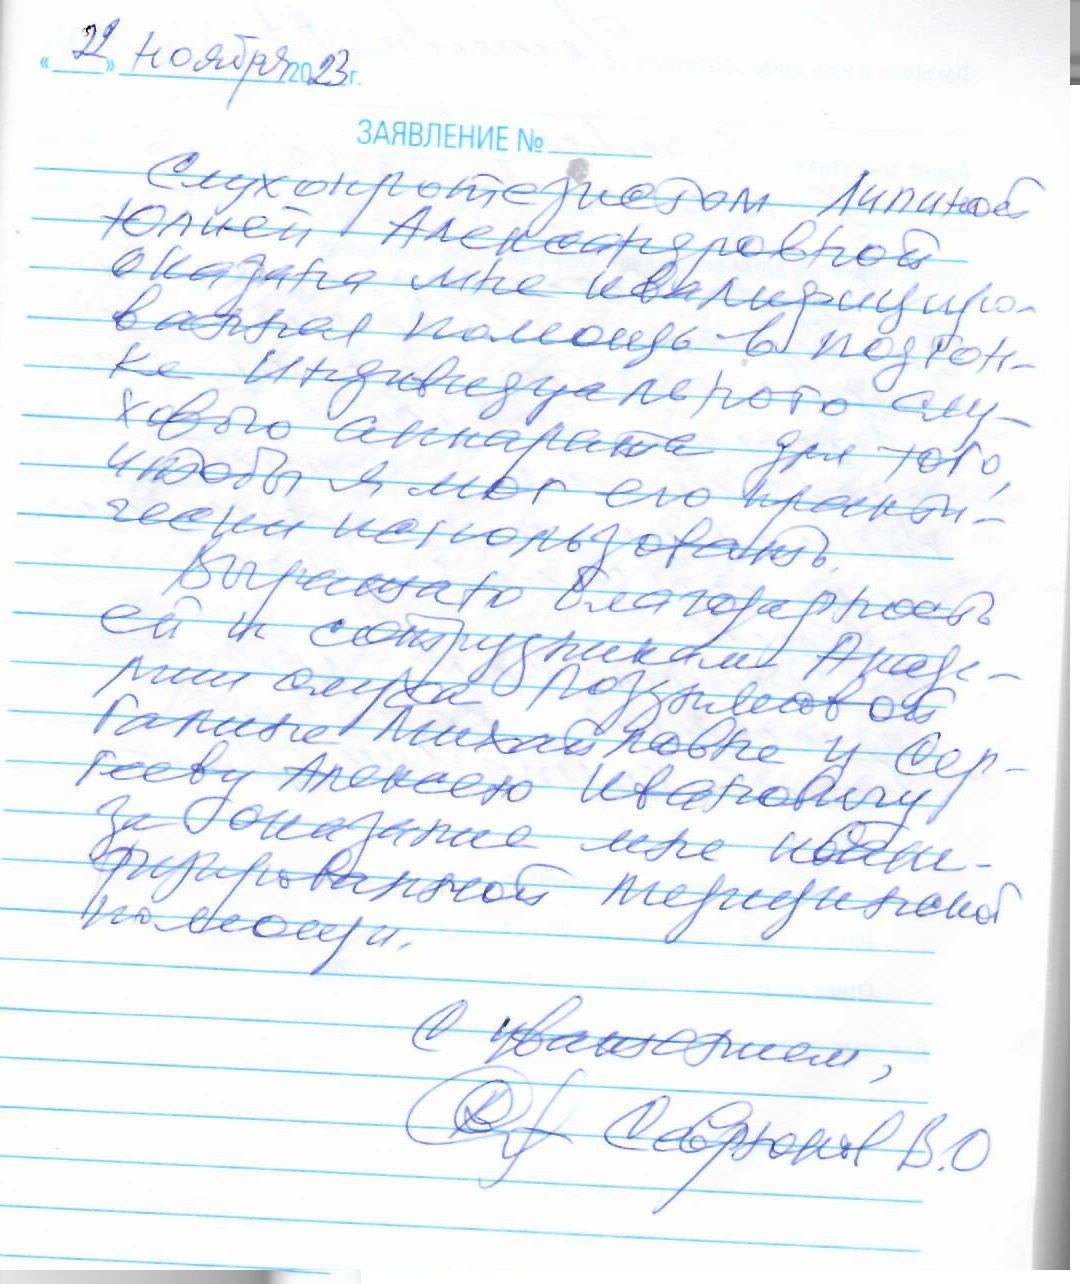 «22» ноября 2023 г.
ЗАЯВЛЕНИЕ №
Слухопротезистом Липиной
Юлией Александровной
оказана мне квалифициро-
ванная помощь в подгон-
ке Индивидуального слу-
хового аппарата для того,
чтобы я мог его практи-
чески использовать.
Выражаю благодарность
ей и сотрудникам Акаде-
мии слуха
Галине Михайловне и Сер-
гееву Алексею Ивановичу
за оказание мне квали-
фицированной медицинской
помощи.
С уважением,
В.О